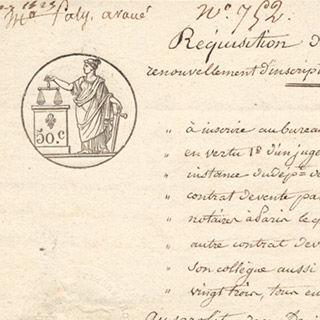 Me Faly, avoué
No. 752.
Réquisition d
renouvellement d'inscripti
50. C
" à inscrire au bureau
" en vertu 1o d'un juge
" instance du dépt. de
" contrat de vente pa
" notaires à Paris le
" autre contrat de ve
" son collègue aussi
" vingt trois, tous en